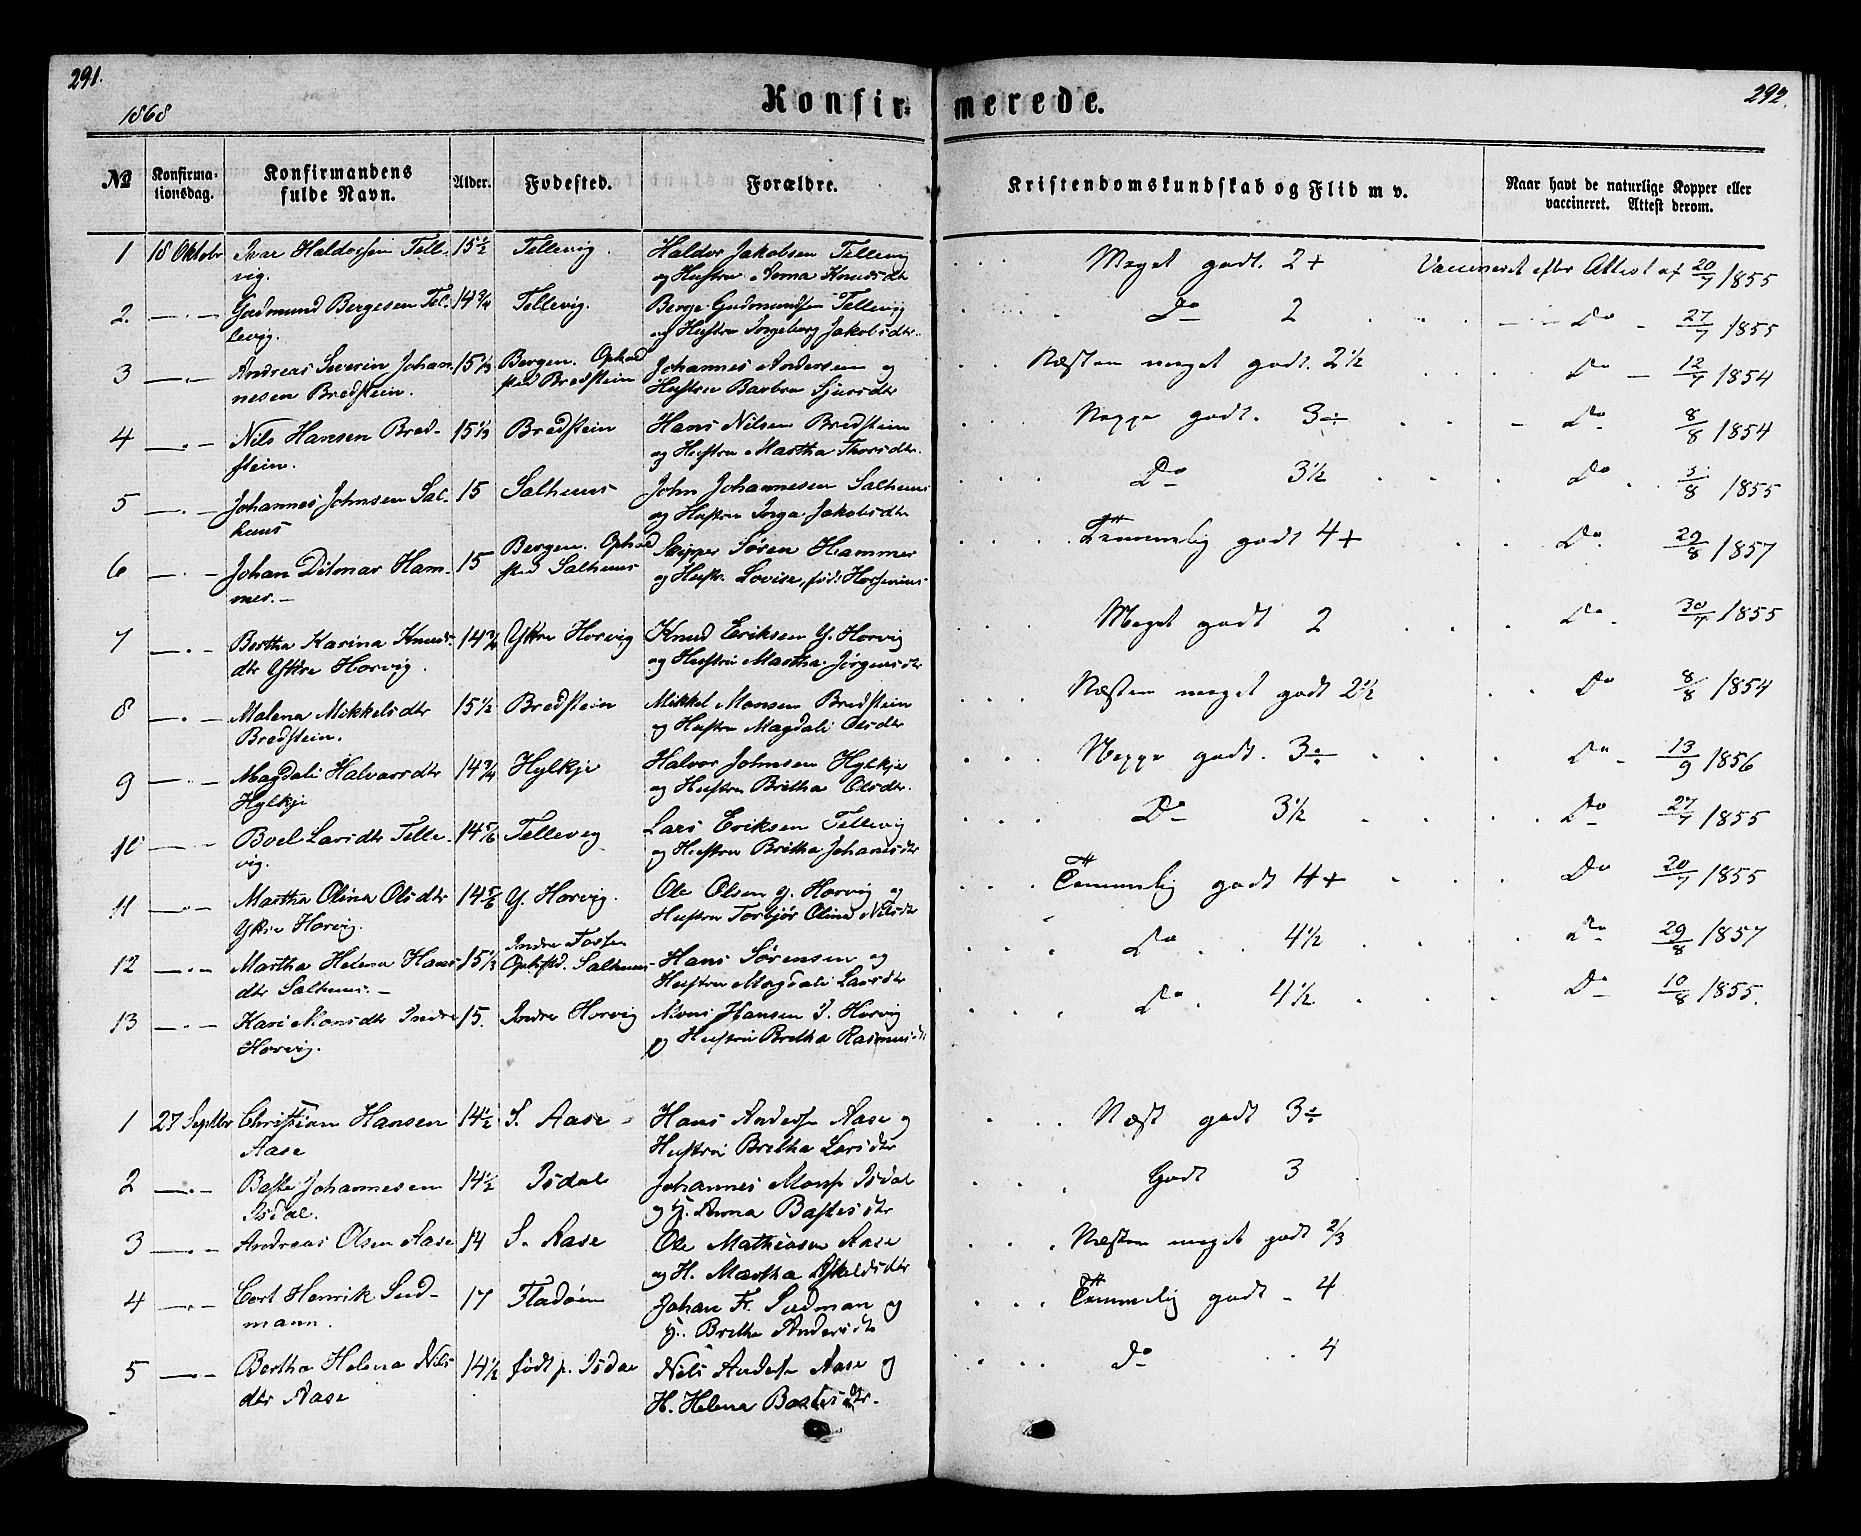 291.
1868
Konfir=
merede.
292.
No
Konfirma-
tionsdag.
Konfirmandens
fulde Navn.
Alder.
Fødested.
Forældre.
Kristendomskundskab og Flid m v.
Naar havt de naturlige Kopper eller
vaccineret. Attest derom.
1 18 Oktobr Ivar Haldorsen Telle- 15½ Tellevig. Haldor Jakobsen Tellevig Meget godt. 2+ Vaccineret efter Attest af 20/7 1855
vig. og Hustru Anna Knudsdtr
2. —"— Gudmund Bergesen Tel- 14¾ Tellevig. Berge Gudmundsen Tellevig Do 2 Do - 27/7 1855
levig. og Hustru Ingeborg Jakobsdtr.
3 —"— Andreas Severin Johan- 15⅓ Bergen. Ophold Johannes Andersen og Næsten meget godt. 2½ Do - 12/7 1854
nesen Bredstein. sted Bredstein Hustru Barbra Sjursdtr
4 —"— Nils Hansen Bred- 15⅓ Bredstein Hans Nilsen Bredstein Neppe godt. 3÷ Do 8/8 1854
stein. og Hustru Martha Thorsdtr.
5 —"— Johannes Johnsen Sal- 15 Salhuus John Johannesen Salhuus Do 3½ Do 5/8 1855
huus og Hustru Inga Jakobsdtr
6 —"— Johan Ditmar Ham- 15 Bergen. Ophold Skipper Søren Hammer Temmelig godt 4+ Do. 29/8 1857
mer.- sted Salhuus og Hustr. Lovise, fød
7 —"— Bertha Karina Knuds- 14¾ Yttre Horvig Knud Eriksen Y. Horvig Meget godt 2 Do. 30/7 1855
dtr Yttre Horvig. og Hustru Martha Jørgensdtr
8 —"— Malena Mikkelsdtr 15½ Bredstein Mikkel Monsen Bredstein Næsten meget godt 2½ Do 8/8 1854
Bredstein. og Hustru Magdali Olsdtr
9 —"— Magdali Halvorsdtr 14¾ Hylkje Halvor Johnsen Hylkje Neppe godt. 3÷ Do - 13/9 1856
Hylkje og Hustru Britha Olsdtr.
10 —"— Boel Larsdtr Telle- 14⅚ Tellevig Lars Eriksen Tellevig Do 3½ Do 27/7 1855
vig. og Hustru Britha Johansdtr
11 —"— Martha Olina Olsdtr 14⅚ Y. Horvig. Ole Olsen Y. Horvig og Temmelig godt 4+ Do 20/7 1855
Yttre Horvig. Hustru Torbjør Olina Nilsdtr
12 —"— Martha Helena Hans- 15⅓ Indre Hans Sørensen og Do. 4½ Do 29/8 1857
dtr Salhuus.- Opholdsted. Salhuus Hustru Magdali Larsdtr
13 —"— Kari Monsdtr Indre 15. Indre Horvig Mons Hansen I. Horvig Do. 4½ Do 10/8 1855.
Horvig. og Hustru Britha Rasmusdtr
1 27 Septbr Christian Hansen 14½ S. Aase Hans Anders. Aase og Næst godt 3÷
Aase Hustru Britha Larsdtr
2 —"— Baste Johannesen 14½ Isdal Johannes Mons. Isdal Godt 3
Isdal. og H. Anna Bastesdtr
3 —"— Andreas Olsen Aase 14 S. Aase Ole Mathiasen Aase Næsten meget godt 2/3
og H. Martha Askeldsdtr
4 —"— Cort Henrik Sud- 17 Fladøen Johan Fr. Sudman og Temmelig godt - 4
mann. H. Britha Andersdtr
5 —"— Bertha Helena Nils- 14½ født p. Isdal Nils Anders. Aase og do 4
dtr Aase H. Helena Bastesdtr.